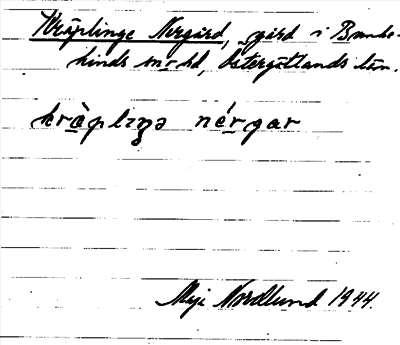 Kräplinge Norgård, gård i Banke-
kinds sn o hd, Östergötlands län.
kràplıŋə nórgar
Maji Nordlund 1944.